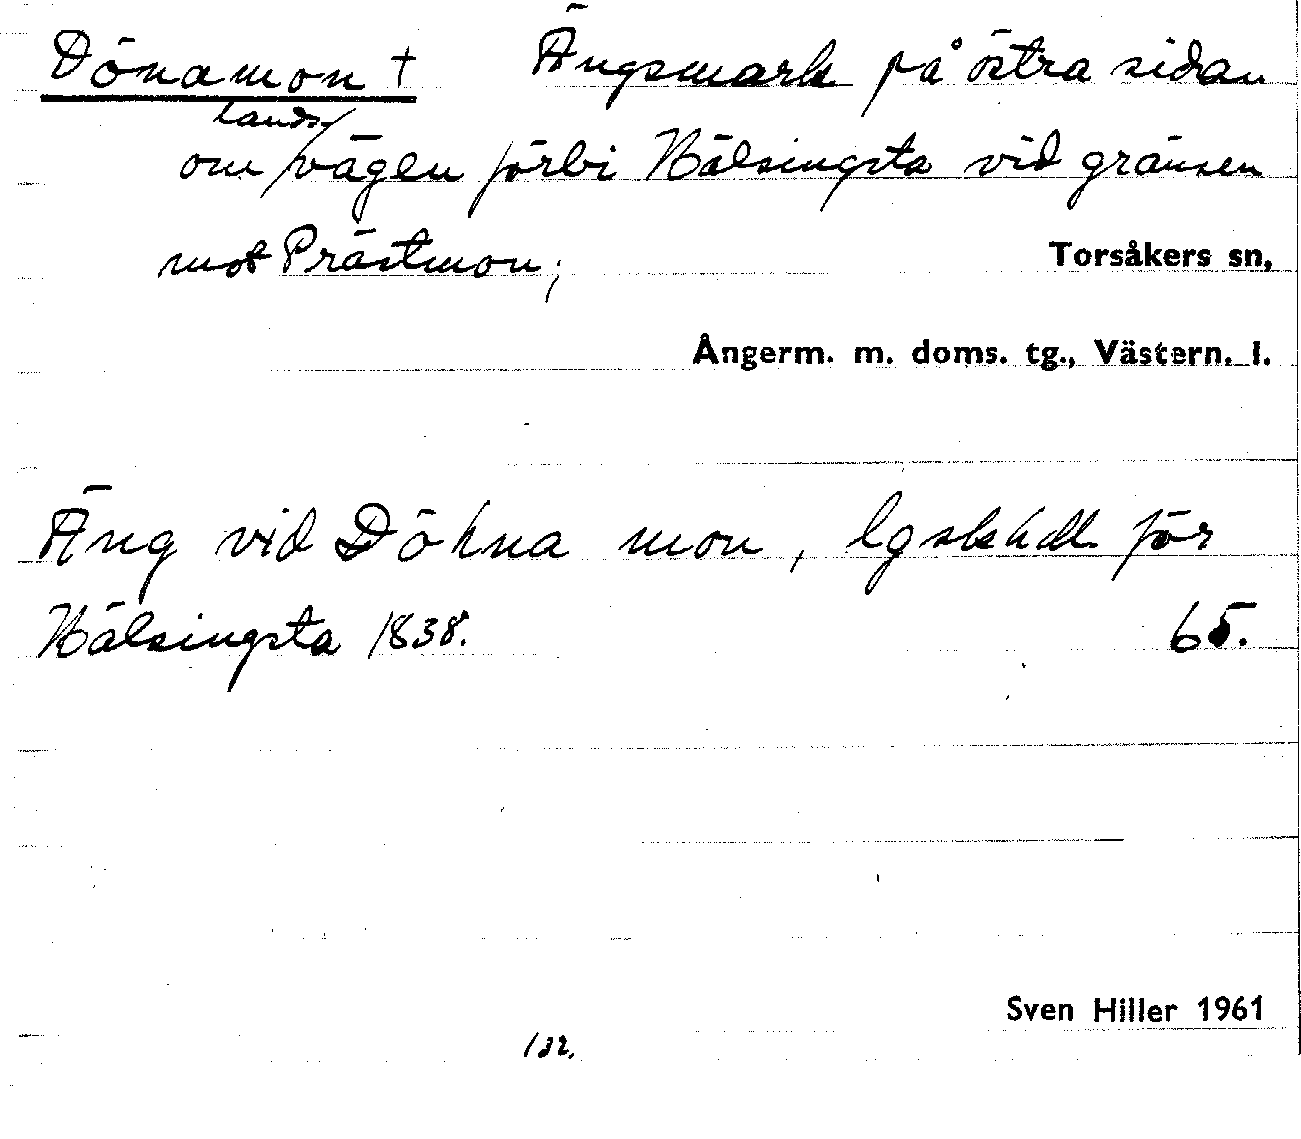 Dönamon † Ängsmark på östra sidan
om landsvägen förbi Hälsingsta vid gränsen
mot Prästmon;
Torsåkers sn,
Ångerm. m. doms. tg., Västern. l.
Äng vid Döhna mon, lgskhdl för
Hälsingsta 1838. 65.
Sven Hiller 1961
132.